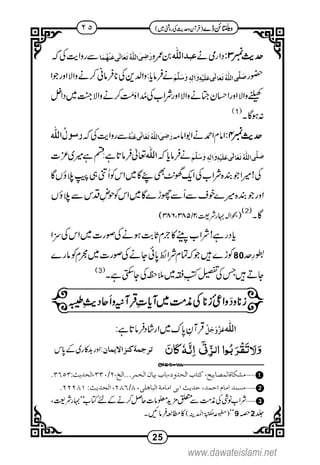 25 ویلنٹائن ڈے (قرآن و حدیث کی روشنی میں)
حدیث نمبر 3: دارمی نے عبداللہ بن عمرو رَضِیَ اللّٰہُ تَعَالٰی عَنْہُمَا سے روایت کی کہ
حضور صَلَّی اللّٰہُ تَعَالٰی عَلَیْہِ وَاٰلِہٖ وَسَلَّمَ نے فرمایا: والدین کی نافرمانی کرنے والا اور جوا
کھیلنے والا اور احسان جتانے والا اور شراب کی مُداوَمت کرنے والا جنت میں داخل
نہ ہوگا۔ (1)
حدیث نمبر 4: امام احمد نے ابو امامہ رَضِیَ اللّٰہُ تَعَالٰی عَنْہُ سے روایت کی کہ رسول اللہ
صَلَّی اللّٰہُ تَعَالٰی عَلَیْہِ وَاٰلِہٖ وَسَلَّمَ نے فرمایا کہ اللہ تعالیٰ فرماتا ہے: قسم ہے میری عزت
کی! میرا جو بندہ شراب کی ایک گھونٹ بھی پیئے گا میں اُس کو اتنی ہی پیپ پلاؤں گا
اور جو بندہ میرے خوف سے اُسے چھوڑے گا میں اس کو حوضِ قدس سے پلاؤں
گا۔ (2) (بحوالہ بہار شریعت، 2/385، 386)
یاد رہے! شراب پینے کا جرم ثابت ہونے کی صورت میں اس کی سزا
بطورِ حد 80 کوڑے ہیں جو کہ تمام شرائط پائی جانے کی صورت میں مجرم کو مارے
جاتے ہیں جس کی تفصیل کتبِ فقہ میں ملاحظہ کی جاسکتی ہے۔ (3)
اللہ عَزَّوَجَلَّ قرآنِ پاک میں ارشاد فرماتا ہے:
وَلَا تَقْرَبُوا الزِّنٰۤى اِنَّهٗ كَانَ ترجمۂ کنز الایمان: اور بدکاری کے پاس
1 ۔۔۔ مشکاۃ المصابیح، کتاب الحدود، باب بیان الخمر...الخ، 2/330، الحدیث: 3653۔
2 ۔۔۔ مسند امام احمد، حدیث ابی امامۃ الباهلی، 8/286، الحدیث: 22281۔
25
www.dawateislami.net